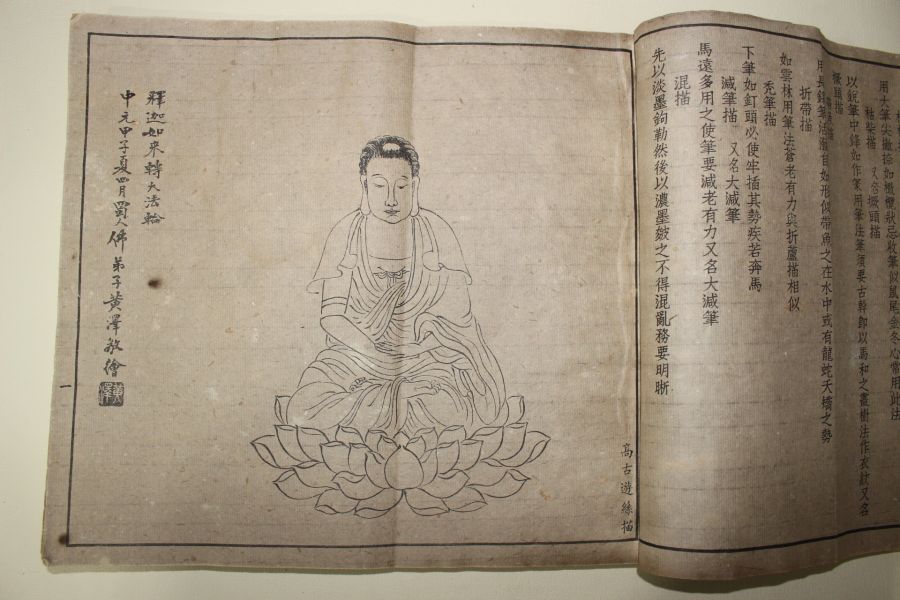 用大筆尖撇捺如橄欖狀忌收筆似鼠尾金冬心常用此法
枯柴描 又名橛頭描
以銳筆中鋒如作篆用筆法筆須要古幹即以馬和之畫樹法作衣紋又名
橛頭描
用長鋒筆法自如形似帶魚之在水中或有龍蛇夭矯之勢
折帶描
如雲林用筆法蒼老有力與折蘆描相似
禿筆描
下筆如釘頭必使牢插其勢疾若奔馬
減筆描 又名大減筆
馬遠多用之使筆要減老有力又名大減筆
混描
先以淡墨鉤勒然後以濃墨皴之不得混亂務要明晰
高古遊絲描
釋迦如來轉大法輪
中元甲子夏四月蜀人佛弟子黃澤敏繪
黃澤
一